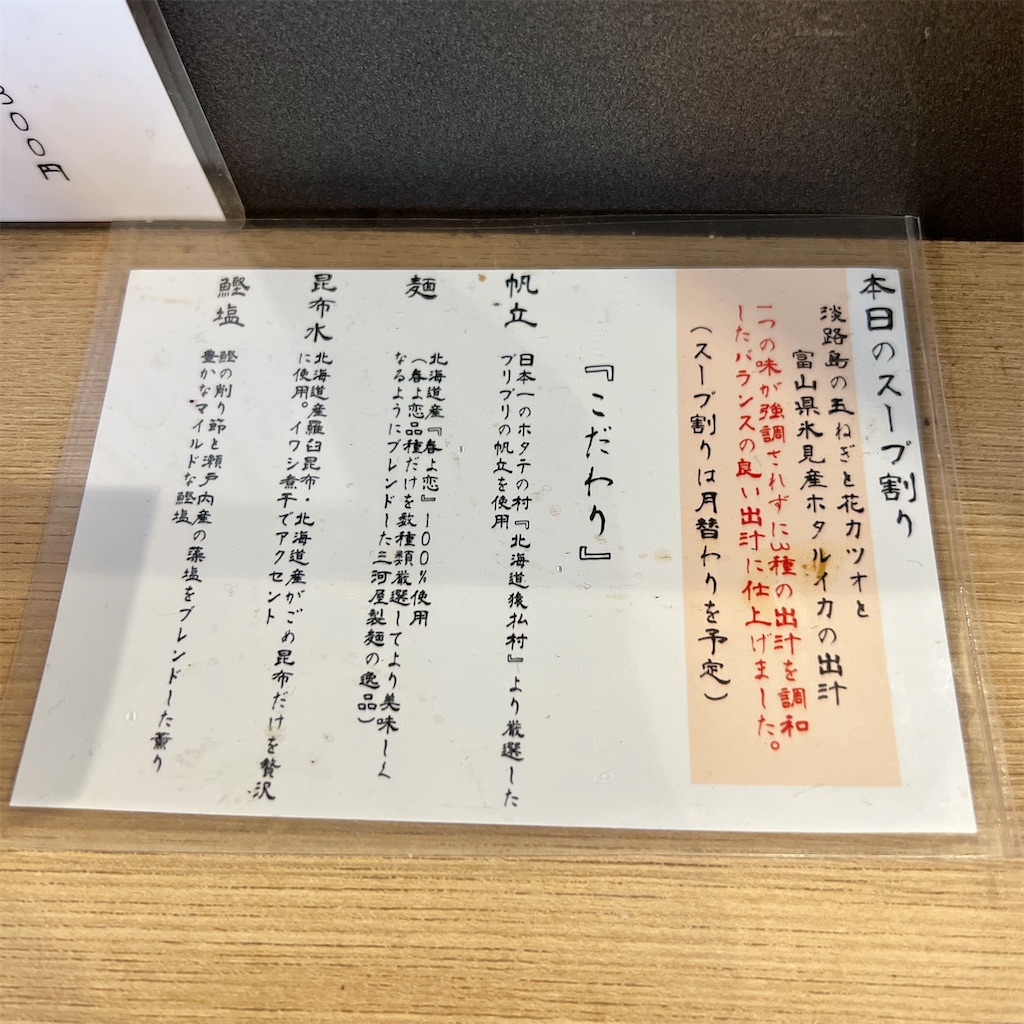 本日のスープ割り
淡路島の玉ねぎと花カツオと
富山県氷見産ホタルイカの出汁
一つの味が強調されずに3種の出汁を調和
したバランスの良い出汁に仕上げました。
(スープ割りは月替わりを予定)
『こだわり』
帆立
日本一のホタテの村『北海道猿払村』より厳選した
プリプリの帆立を使用
麺
北海道産『春よ恋』100%使用
(春よ恋品種だけを数種類厳選してより美味しく
なるようにブレンドした三河屋製麺の逸品)
昆布水
北海道産羅臼昆布・北海道産がごめ昆布だけを贅沢
に使用。イワシ煮干でアクセント
鰹塩
鰹の削り節と瀬戸内産の藻塩をブレンドした薫り
豊かなマイルドな鰹塩
00円